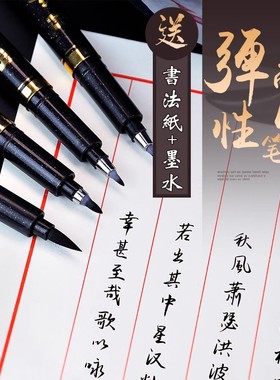 送
書法紙+墨水
彈性
笔
秋風蕭瑟洪波
若出其中星汉
幸甚至哉歌以咏